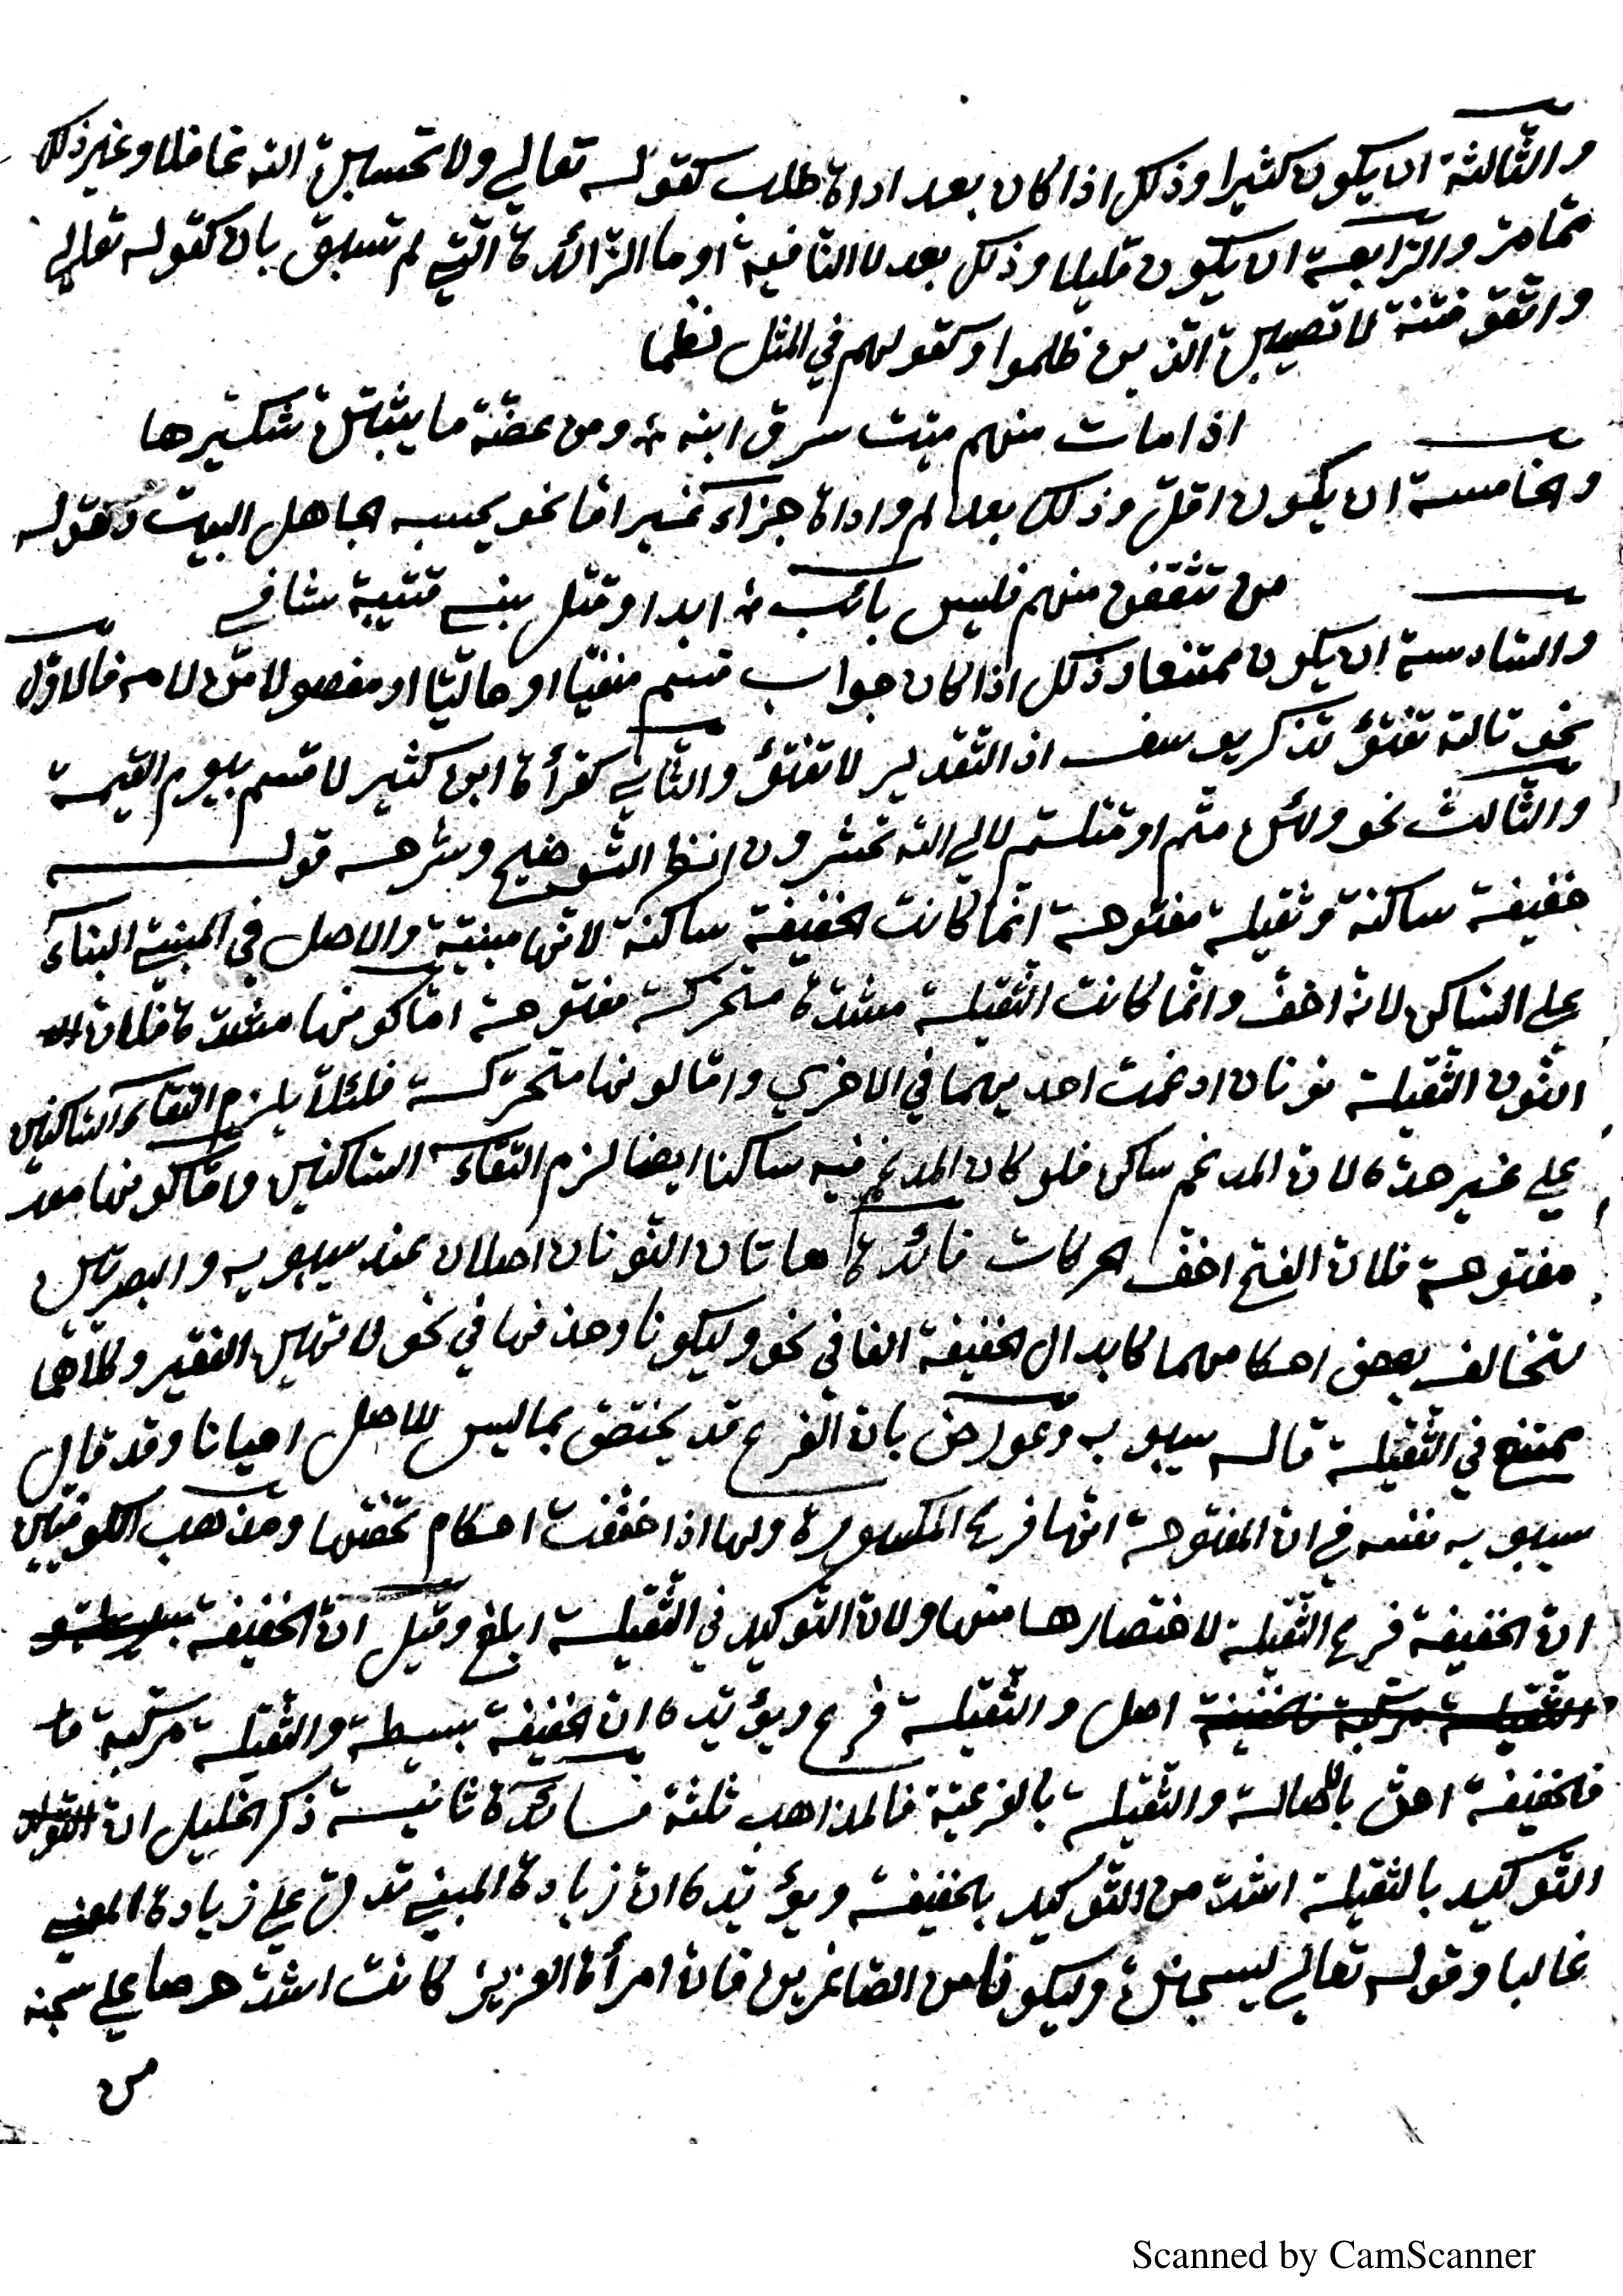 والثالثة ان يكون كثيرا وذلك اذا كان بعد اداة طلب كقوله تعالي ولا تحسبن الله غافلا وغير ذلك
مما مر والرابعة ان يكون قليلا وذلك بعد لا النافية او ما الزائدة التي لم تسبق بان كقوله تعالي
واتقو فتنة لا تصيبن الذين ظلموا وكقولهم في المثل نظما
اذا مات منهم ميت سرق ابنه ومن عضة ما ينبتن شكيرها
والخامسة ان يكون اقل وذلك بعد لم واداة جزاء غير اما نحو يحسبه الجاهل البيت وكقوله
من تثقفن منهم فليس بائب ابدا وقتل بني قتيبة شافي
والسادسة ان يكون ممتنعا وذلك اذا كان جواب قسم منفيا او حاليا او مفصولا من لامه فالاول
نحو تالله تفتؤ تذكر يوسف اذ التقدير لا تفتؤ والثاني كقرأة ابن كثير لا قسم بيوم القيمة
والثالث نحو ولئن متم او قتلتم لالي الله تحشرون انظر التوضيح وشرحه قوله
خفيفة ساكنة وثقيلة مفتوحة انما كانت الخفيفة ساكنة لانها مبنية والاصل في المبني البناء
علي الساكن لانه اخف وانما كانت الثقيلة مشددة متحركة مفتوحة اما كونها مشددة فلان
النون الثقيلة نونان ادغمت احديهما في الاخري واما كونها متحركة فلئلا يلزم التقاء الساكنين
علي غير حده لان المدغم ساكن فلو كان المدغم فيه ساكنا ايضا لزم التقاء الساكنين واما كونها
مفتوحة فلان الفتح اخف الحركات فائدة هاتان النونان اصلان عند سيبويه والبصريين
لتخالف بعض احكامهما كابدال الخفيفة الفا في نحو وليكونا وحذفها في نحو لا تهين الفقير وكلاهما
ممتنع في الثقيلة قاله سيبويه وعورض بان الفرع قد يختص بما ليس للاصل احيانا وقد قال
سيبويه نفسه في ان المفتوحة انها فرع المكسورة ولها اذا خففت احكام تخصها ومذهب الكوفيين
ان الخفيفة فرع الثقيلة لاختصارها منها ولان التوكيد في الثقيلة ابلغ وقيل ان الخفيفة بسيطة و
الثقيلة مركبة فالخفيفة اصل والثقيلة فرع ويؤيده ان الخفيفة بسيطة والثقيلة مركبة
فالخفيفة احق بالاصالة والثقيلة بالفرعية فالمذاهب ثلثة فائدة ثانية ذكر الخليل ان
التوكيد بالثقيلة اشد من التوكيد بالخفيفة ويؤيده ان زيادة المبني تدل علي زيادة المعني
غالبا وقوله تعالي ليسجنن وليكونا من الصاغرين فان امرأة العزيز كانت اشد حرصا علي سجنه
من
Scanned by CamScanner